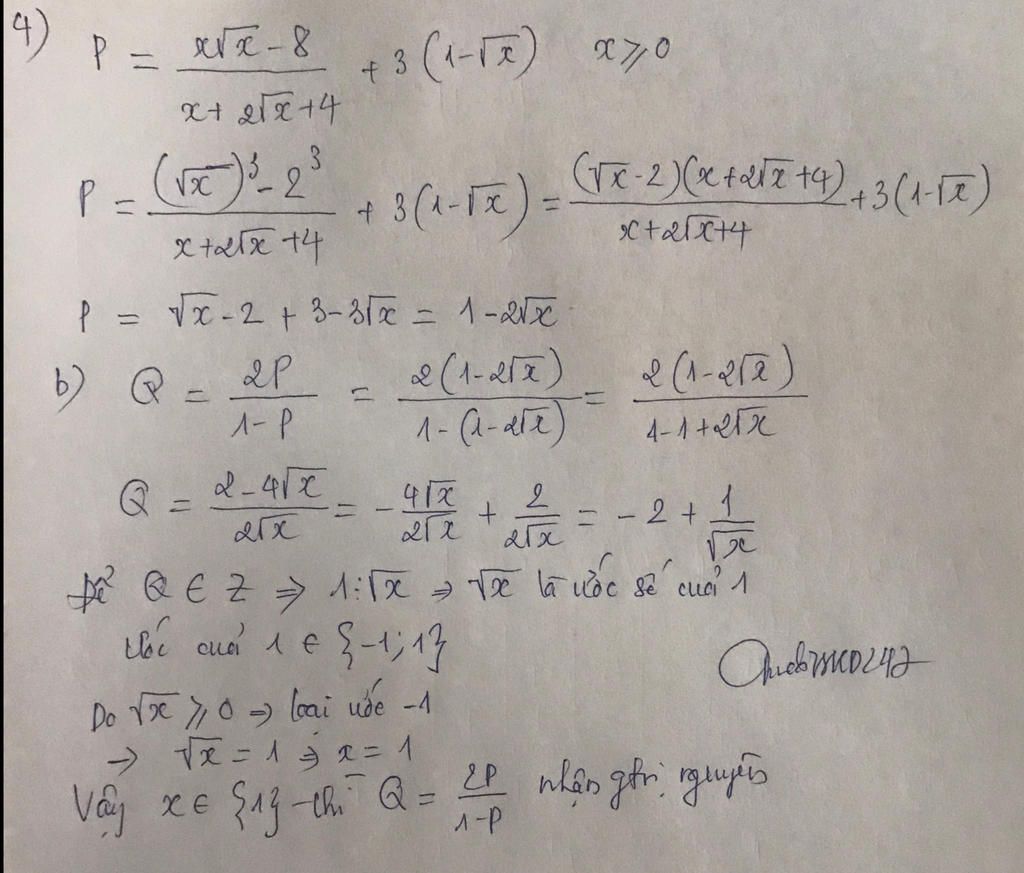 4) P = \frac{x\sqrt{x} - 8}{x + 2\sqrt{x} + 4} + 3(1 - \sqrt{x}) x ⩾ 0
P = \frac{(\sqrt{x})^3 - 2^3}{x + 2\sqrt{x} + 4} + 3(1 - \sqrt{x}) = \frac{(\sqrt{x} - 2)(x + 2\sqrt{x} + 4)}{x + 2\sqrt{x} + 4} + 3(1 - \sqrt{x})
P = \sqrt{x} - 2 + 3 - 3\sqrt{x} = 1 - 2\sqrt{x}
b) Q = \frac{2P}{1 - P} = \frac{2(1 - 2\sqrt{x})}{1 - (1 - 2\sqrt{x})} = \frac{2(1 - 2\sqrt{x})}{1 - 1 + 2\sqrt{x}}
Q = \frac{2 - 4\sqrt{x}}{2\sqrt{x}} = -\frac{4\sqrt{x}}{2\sqrt{x}} + \frac{2}{2\sqrt{x}} = -2 + \frac{1}{\sqrt{x}}
Để Q ∈ Z ⇒ 1 ⋮ \sqrt{x} ⇒ \sqrt{x} là ước số của 1
Ước của 1 ∈ {-1; 1}
Do \sqrt{x} ⩾ 0 ⇒ loại ước -1
→ \sqrt{x} = 1 ⇒ x = 1
Vậy x ∈ {1} thì Q = \frac{2P}{1 - P} nhận gtrị nguyên